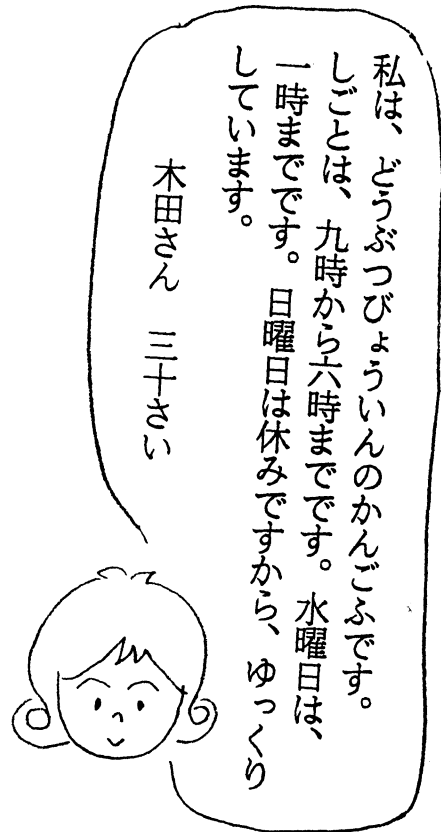 私は、どうぶつびょういんのかんごふです。
しごとは、九時から六時までです。水曜日は、
一時までです。日曜日は休みですから、ゆっくり
しています。
木田さん　三十さい